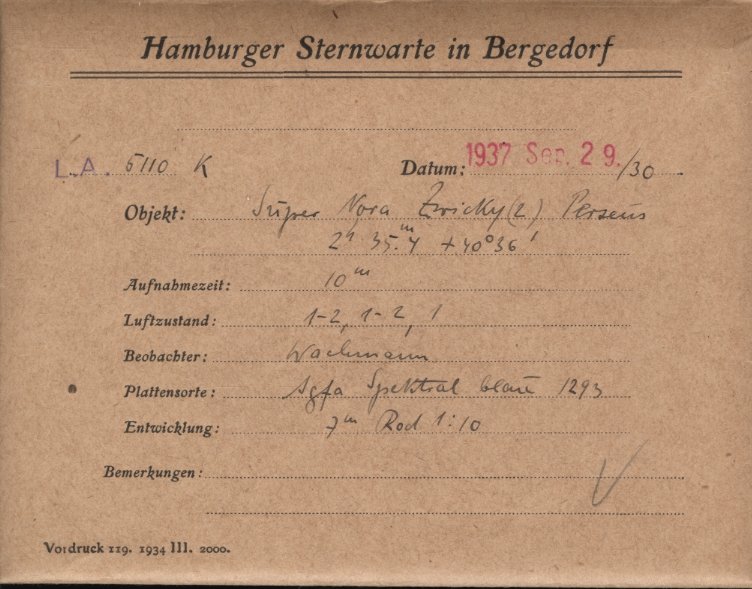 Hamburger Sternwarte in Bergedorf
L.A. 5110 K Datum: 1937 Sep. 29./30
Objekt: Super Nova Zwicky (2) Perseus
2h 35.m4 +40°36'
Aufnahmezeit: 10m
Luftzustand: 1-2, 1-2, 1
Beobachter: Wachmann
Plattensorte: Agfa Spektral blau 1293
Entwicklung: 7m Rod 1:10
Bemerkungen:
Vordruck 119. 1934 III. 2000.